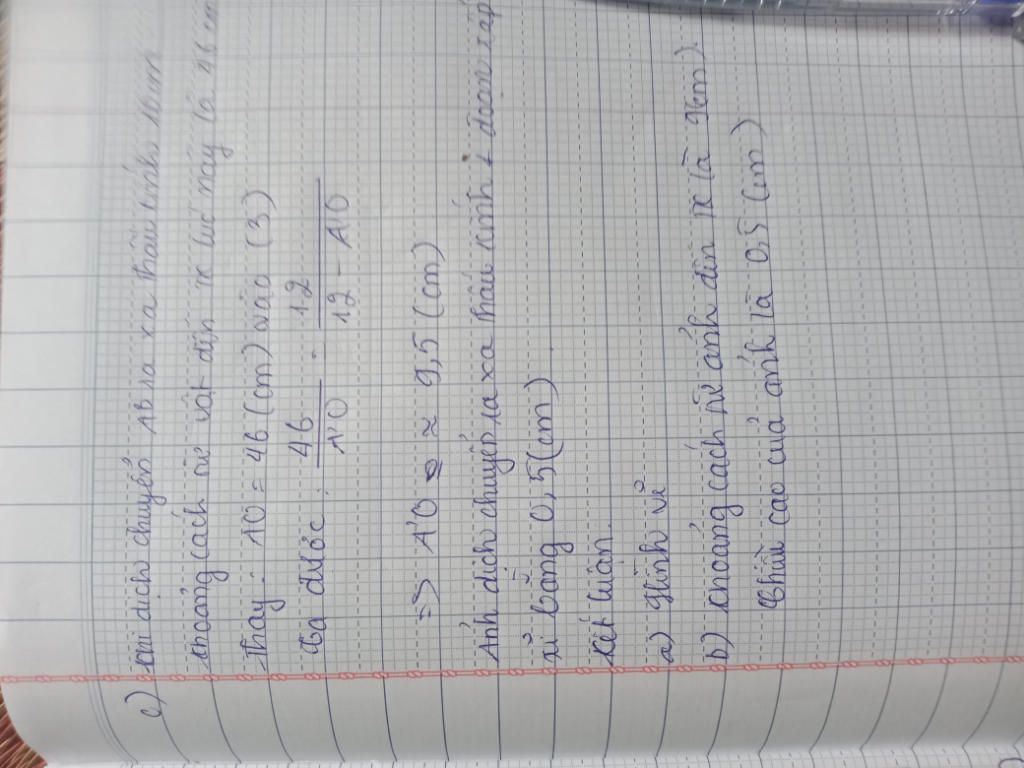 c) Khi dịch chuyển AB ra xa thấu kính 10cm
Khoảng cách từ vật đến TK lúc này là 46 cm
Thay: AO = 46 (cm) vào (3)
Ta được: 46/A'O = 12/12 - A'O
=> A'O ≈ 9,5 (cm)
Ảnh dịch chuyển ra xa thấu kính 1 đoạn xấp
xỉ bằng 0,5 (cm)
Kết luận.
a) Hình vẽ
b) Khoảng cách từ ảnh đến TK là 9(cm)
Chiều cao của ảnh là 0,5 (cm)